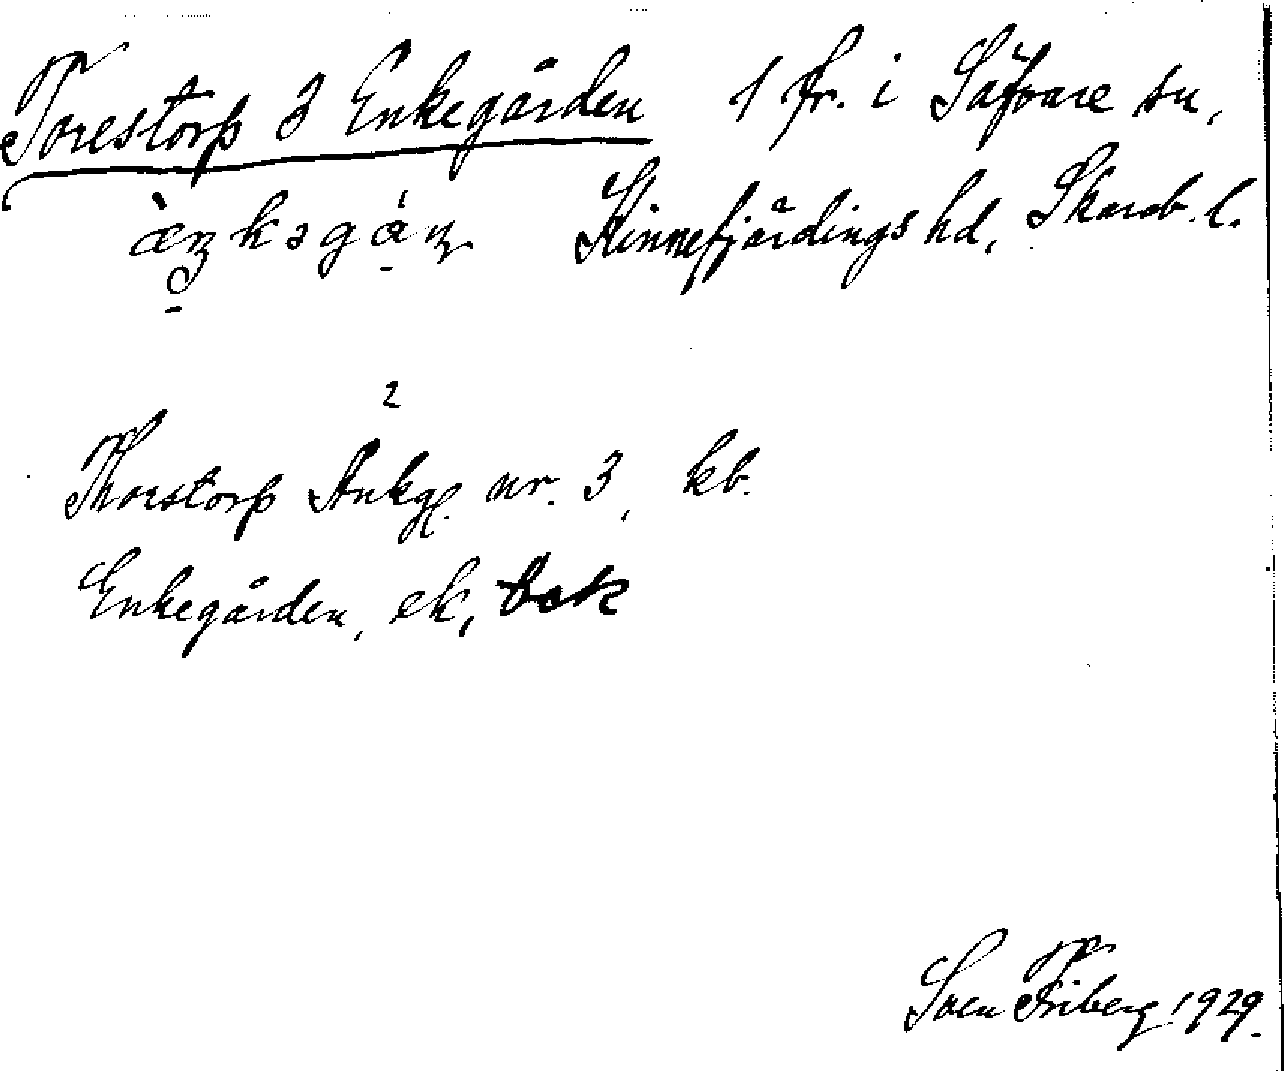 Torestorp 3 Enkegården 1 fr. i Säfvare sn,
Kinnefjärdings hd, Skarab. l.
2
Thorstorp Änkeg. nr. 3, kb.
Enkegården, ek,
Sven Friberg 1929.